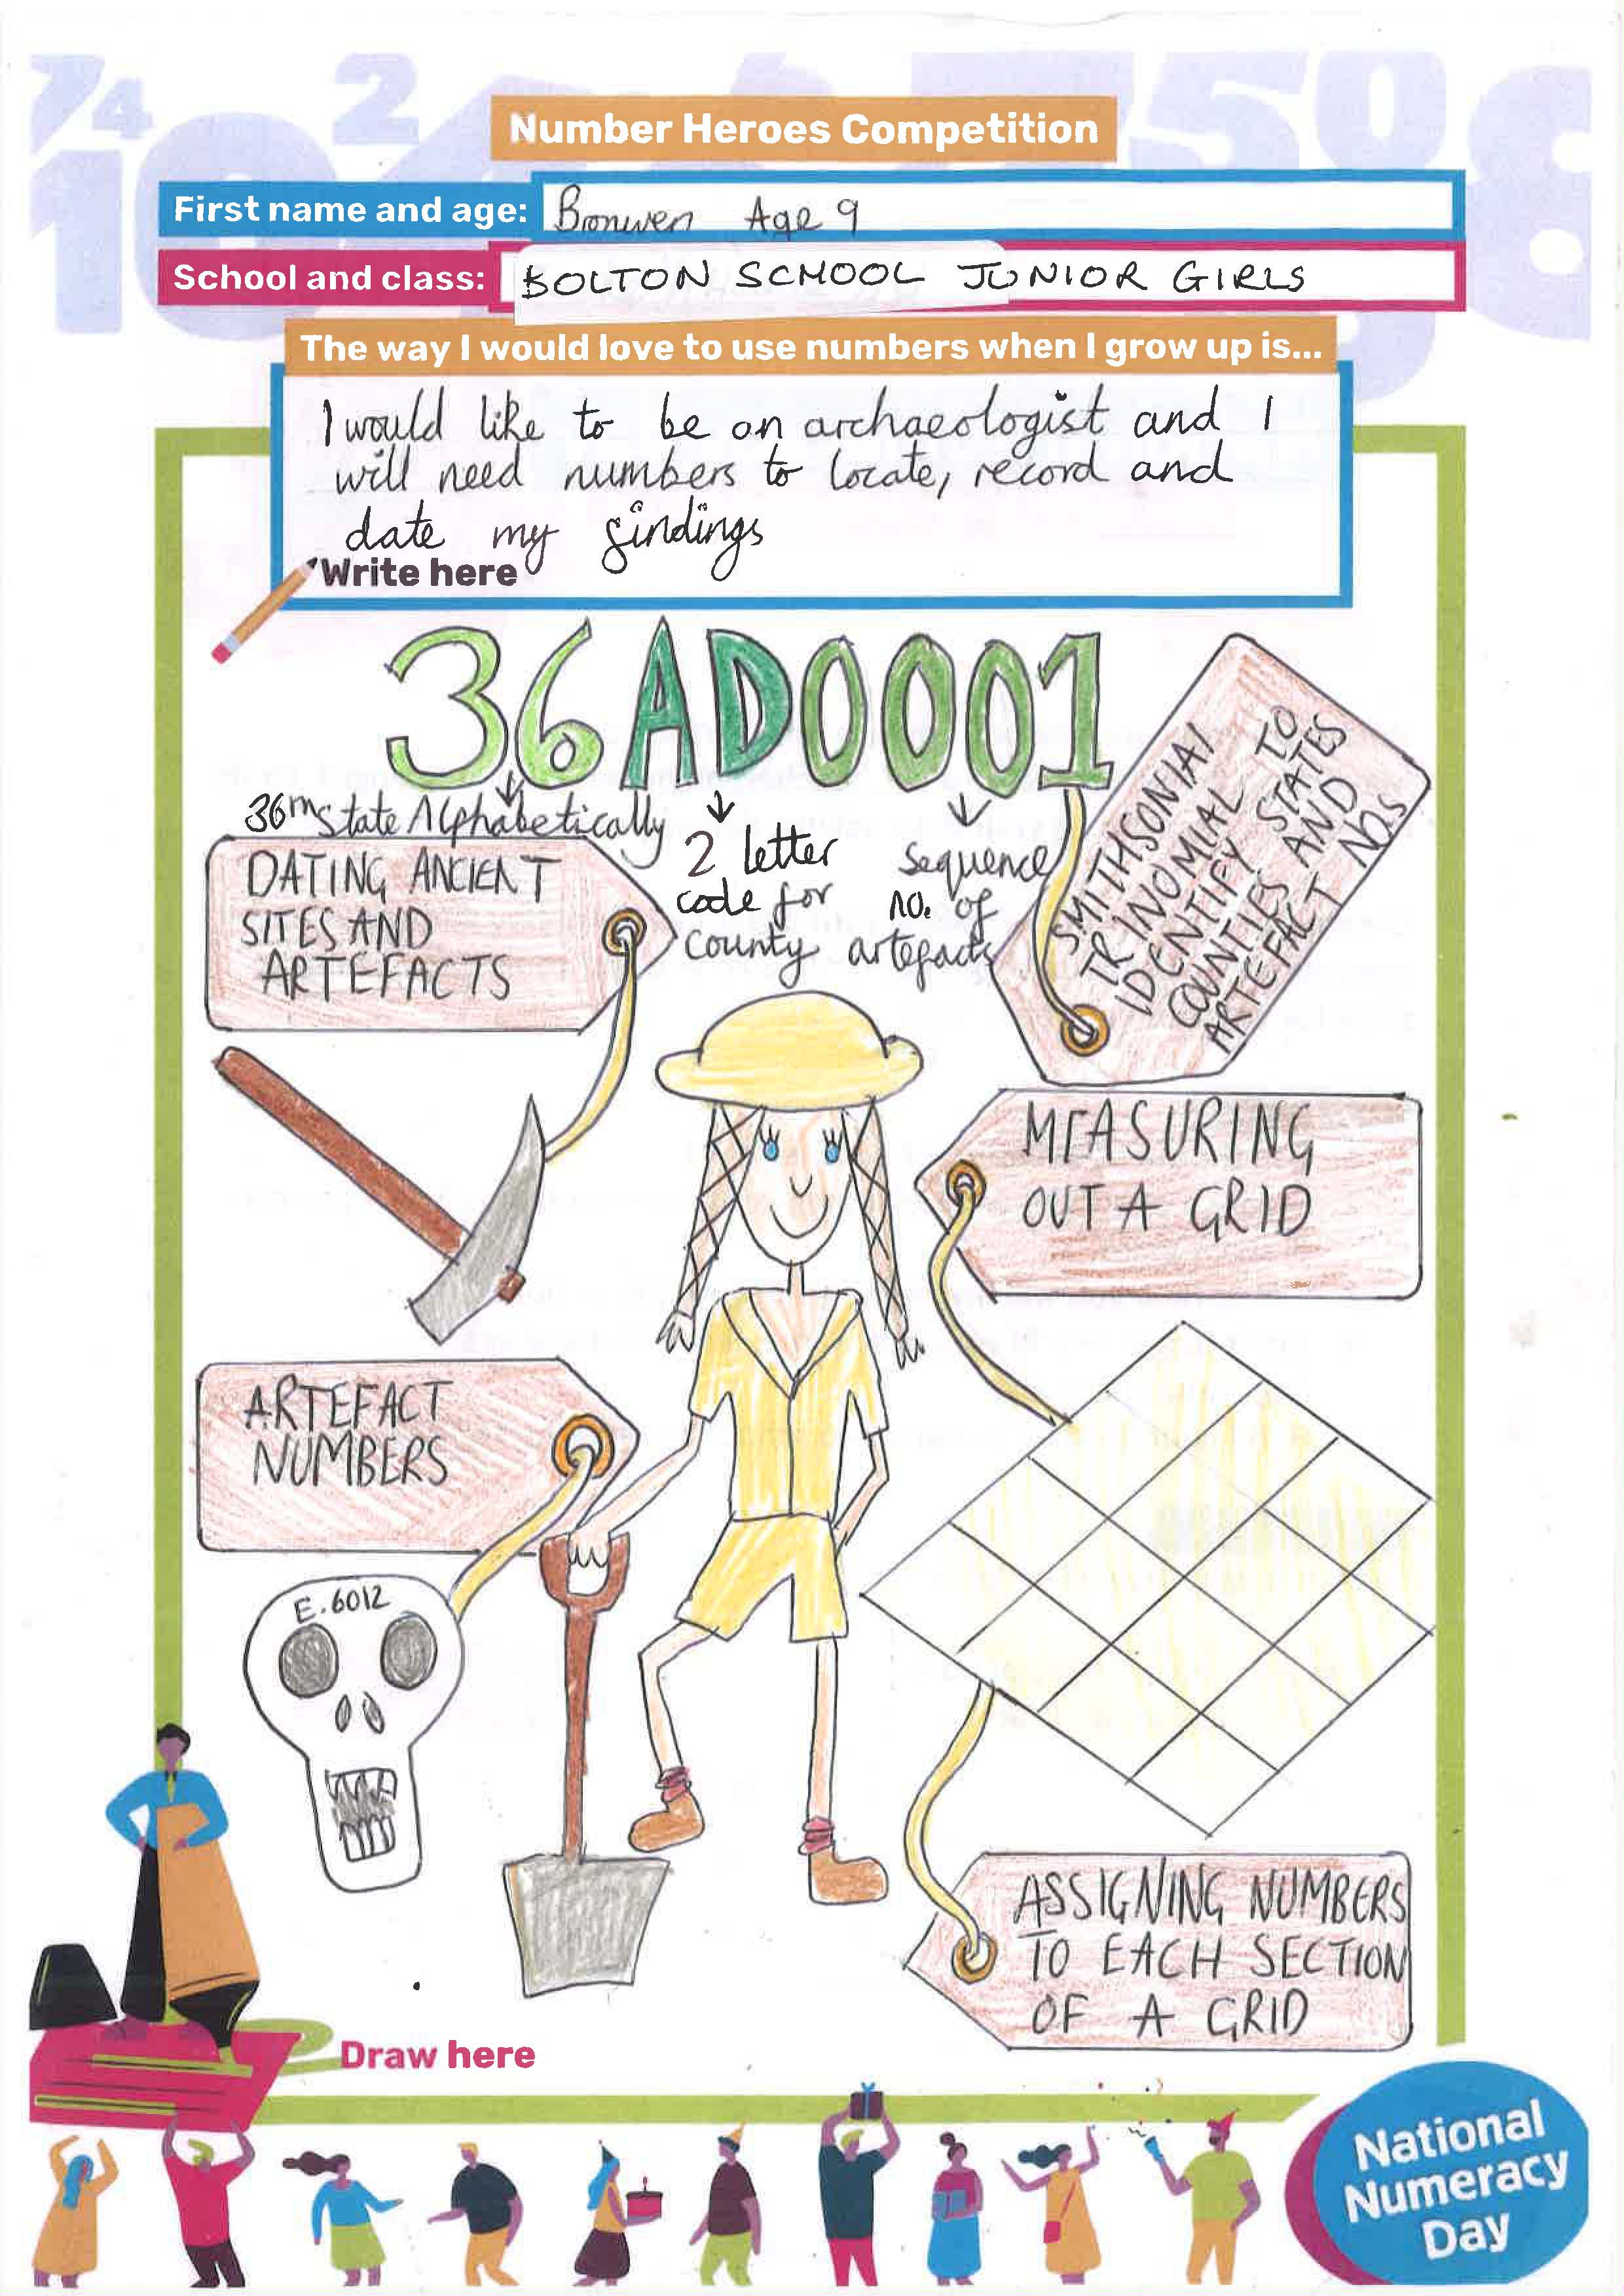 Number Heroes Competition
First name and age: Bronwen Age 9
School and class: BOLTON SCHOOL JUNIOR GIRLS
The way I would love to use numbers when I grow up is...
I would like to be an archaeologist and I
will need numbers to locate, record and
date my findings
Write here
36AD0001
36th state Alphabetically
2 letter
code for
county
sequence
no. of
artefacts
SMITHSONIAN
TRINOMIAL TO
IDENTIFY STATES
COUNTIES AND
ARTEFACT NOS
DATING ANCIENT
SITES AND
ARTEFACTS
MEASURING
OUT A GRID
ARTEFACT
NUMBERS
E.6012
ASSIGNING NUMBERS
TO EACH SECTION
OF A GRID
Draw here
National
Numeracy
Day